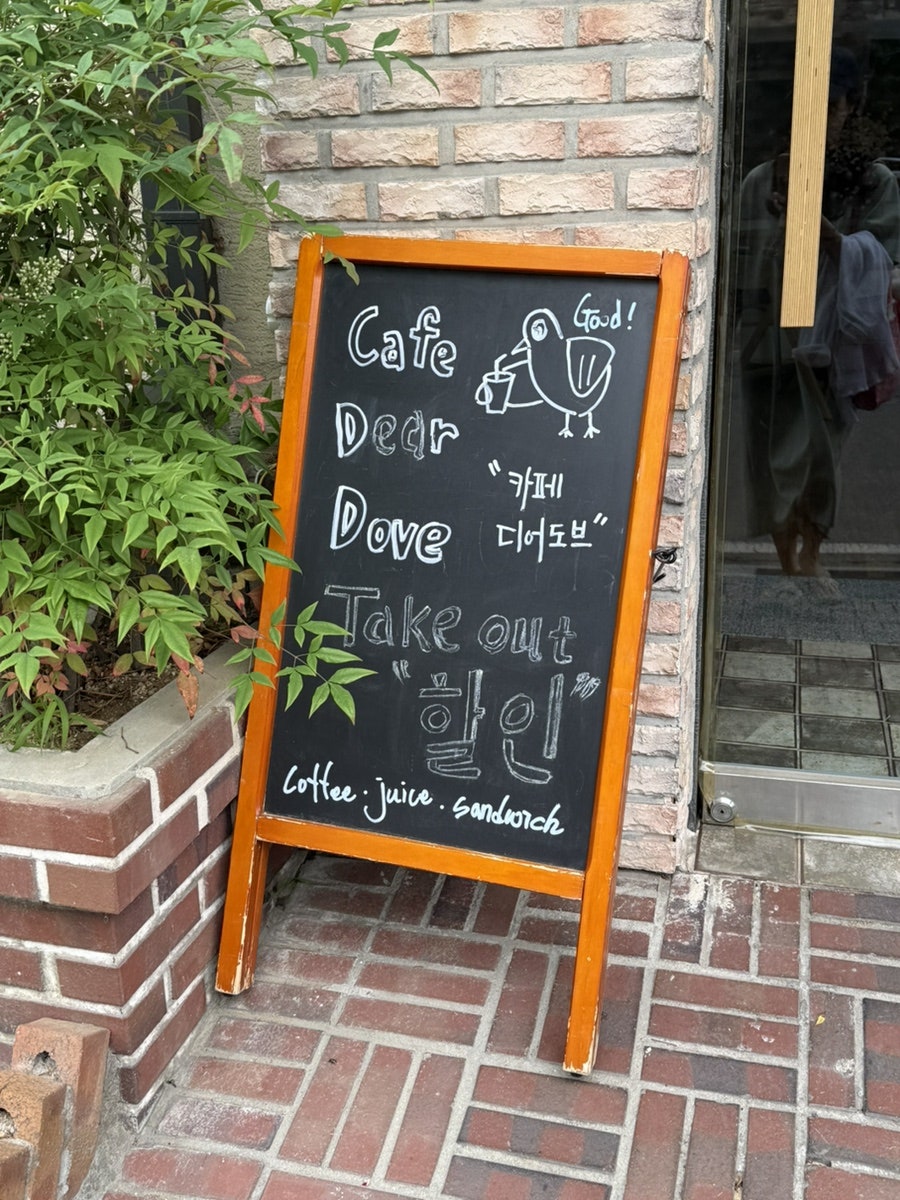 Cafe
Good!
Dear
Dove
"카페
디어도브"
Take out
"할인"
Coffee · juice · sandwich